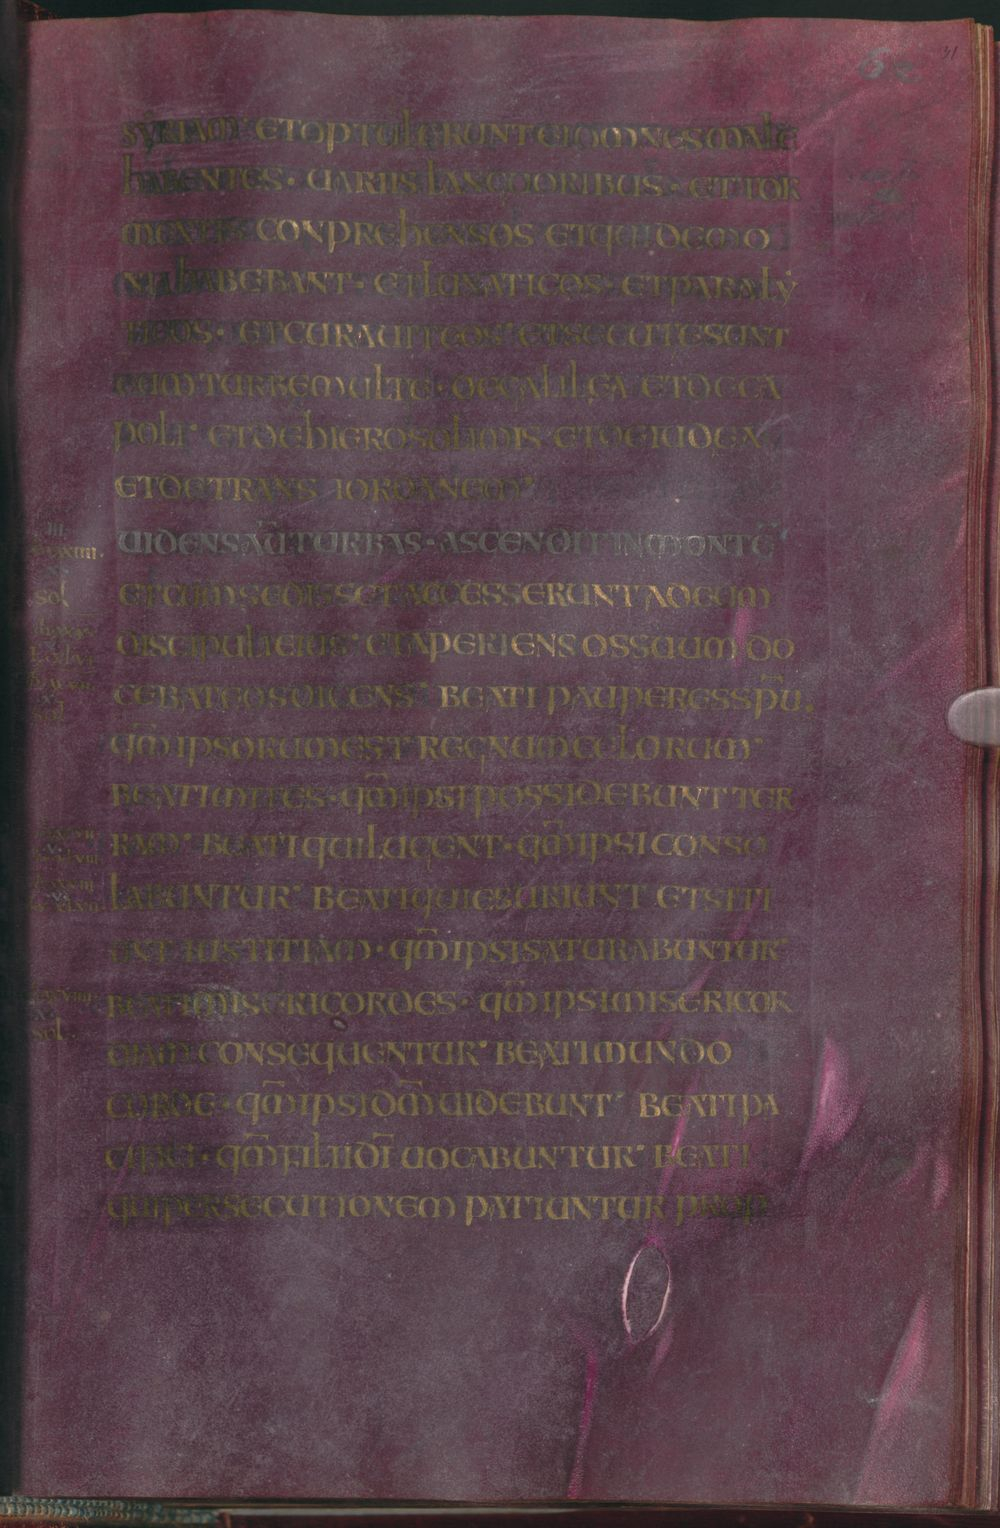 SYRIAM· ET OPTULERUNT EI OMNES MALE
HABENTES· UARIIS LANGUORIBUS· ET TOR
MENTIS CONPREHENSOS ET QUI DEMO
NIA HABEBANT· ET LUNATICOS· ET PARALY
TICOS· ET CURAUIT EOS· ET SECUTE SUNT
EUM TURBE MULTE· DE GALILEA ET DECA
POLI· ET DE HIEROSOLIMIS· ET DE IUDEA
ET DE TRANS IORDANEM·
UIDENS AŪ TURBAS· ASCENDIT IN MONTĒ·
ET CUM SEDISSET ACCESSERUNT AD EUM
DISCIPULI EIUS· ET APERIENS OS SUUM DO
CEBAT EOS DICENS· BEATI PAUPERES SPŪ.
QM̄ IPSORUM EST REGNUM CELORUM·
BEATI MITES· QM̄ IPSI POSSIDEBUNT TER
RAM· BEATI QUI LUGENT· QM̄ IPSI CONSO
LABUNTUR· BEATI QUI ESURIUNT ET SITI
UNT IUSTITIAM· QM̄ IPSI SATURABUNTUR·
BEATI MISERICORDES· QM̄ IPSI MISERICOR
DIAM CONSEQUENTUR· BEATI MUNDO
CORDE· QM̄ IPSI DM̄ UIDEBUNT· BEATI PA
CIFICI· QM̄ FILII DĪ UOCABUNTUR· BEATI
QUI PERSECUTIONEM PATIUNTUR PROP